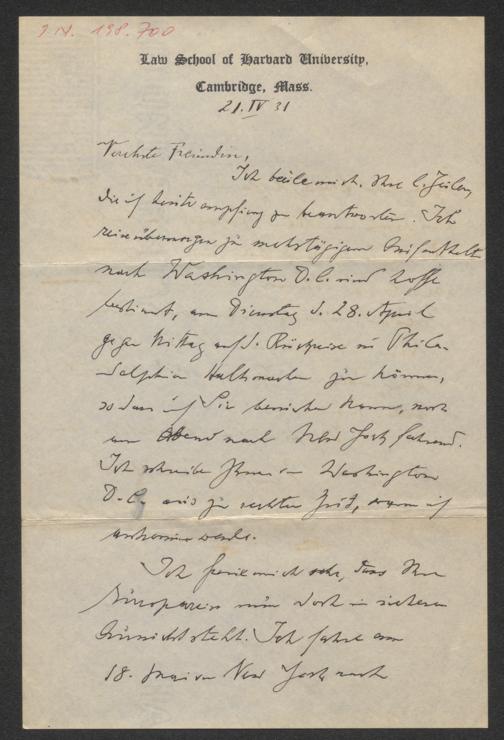 I N. 198.700
Law School of Harvard University,
Cambridge, Mass.
21. IV 31
Verehrte Freundin,
Ich beeile mich, Ihre l. Zeilen,
die ich heute empfing zu beantworten. Ich
reise übermorgen zu mehrtägigem Aufenthalt
nach Washington D.C. und hoffe
bestimmt, am Dienstag d. 28. April
gegen Mittag auf d. Rückreise in Phila-
delphia Halt machen zu können,
so dass ich Sie besuchen kann, noch
am Abend nach New York fahrend.
Ich schreibe Ihnen von Washington
D.C. aus zu rechter Zeit, wann ich
ankommen werde.
Ich freue mich sehr, dass Ihre
Europareise nun doch in sicherer
Aussicht steht. Ich fahre am
18. Mai von New York nach